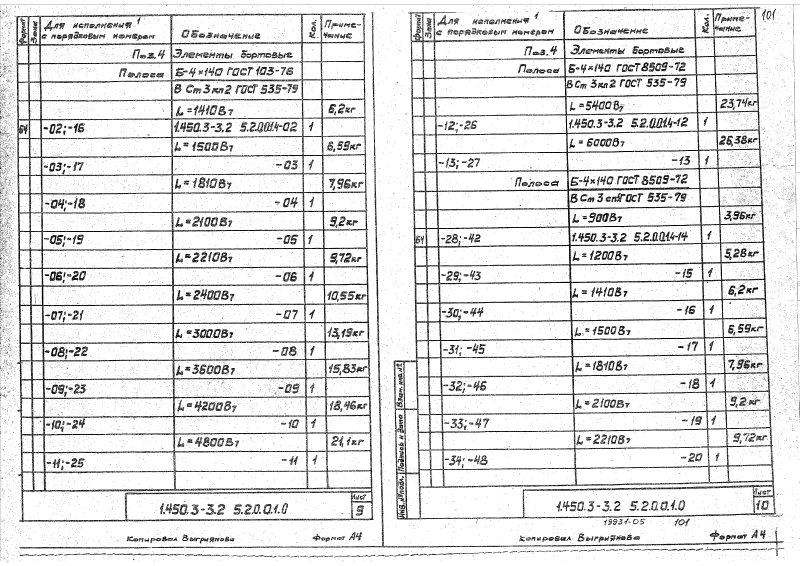 101
Формат Зона Для исполнения 1 с порядковым номером Обозначение Кол. Приме-чание
Поз.4 Элементы бортовые
Полоса Б-4×140 ГОСТ 103-76
В Ст 3 кп2 ГОСТ 535-79
L=1410Вт 6,2кг
БЧ -02;-16 1.450.3-3.2 5.2.0.0.1.4-02 1
L=1500Вт 6,59кг
-03;-17 -03 1
L=1810Вт 7,96кг
-04;-18 -04 1
L=2100Вт 9,2кг
-05;-19 -05 1
L=2210Вт 9,72кг
-06;-20 -06 1
L=2400Вт 10,55кг
-07;-21 -07 1
L=3000Вт 13,19кг
-08;-22 -08 1
L=3600Вт 15,83кг
-09;-23 -09 1
L=4200Вт 18,46кг
-10;-24 -10 1
L=4800Вт 21,1кг
-11;-25 -11 1
1.450.3-3.2 5.2.0.0.1.0
Лист
9
Копировал Выгриянова Формат А4
Формат Зона Для исполнения 1 с порядковым номером Обозначение Кол. Приме-чание
Поз.4 Элементы бортовые
Полоса Б-4×140 ГОСТ 8509-72
В Ст 3 кп2 ГОСТ 535-79
L=5400Вт 23,74кг
-12;-26 1.450.3-3.2 5.2.0.0.1.4-12 1
L=6000Вт 26,38кг
-13;-27 -13 1
Полоса Б-4×140 ГОСТ 8509-72
В Ст 3 сп5 ГОСТ 535-79
L=900Вт 3,96кг
БЧ -28;-42 1.450.3-3.2 5.2.0.0.1.4-14 1
L=1200Вт 5,28кг
-29;-43 -15 1
L=1410Вт 6,2кг
-30;-44 -16 1
L=1500Вт 6,59кг
-31;-45 -17 1
L=1810Вт 7,96кг
-32;-46 -18 1
L=2100Вт 9,2кг
-33;-47 -19 1
L=2210Вт 9,72кг
-34;-48 -20 1
Инв.№подл. Подпись и дата Взам.инв.№
1.450.3-3.2 5.2.0.0.1.0
Лист
10
19931-05 101
Копировал Выгриянова Формат А4